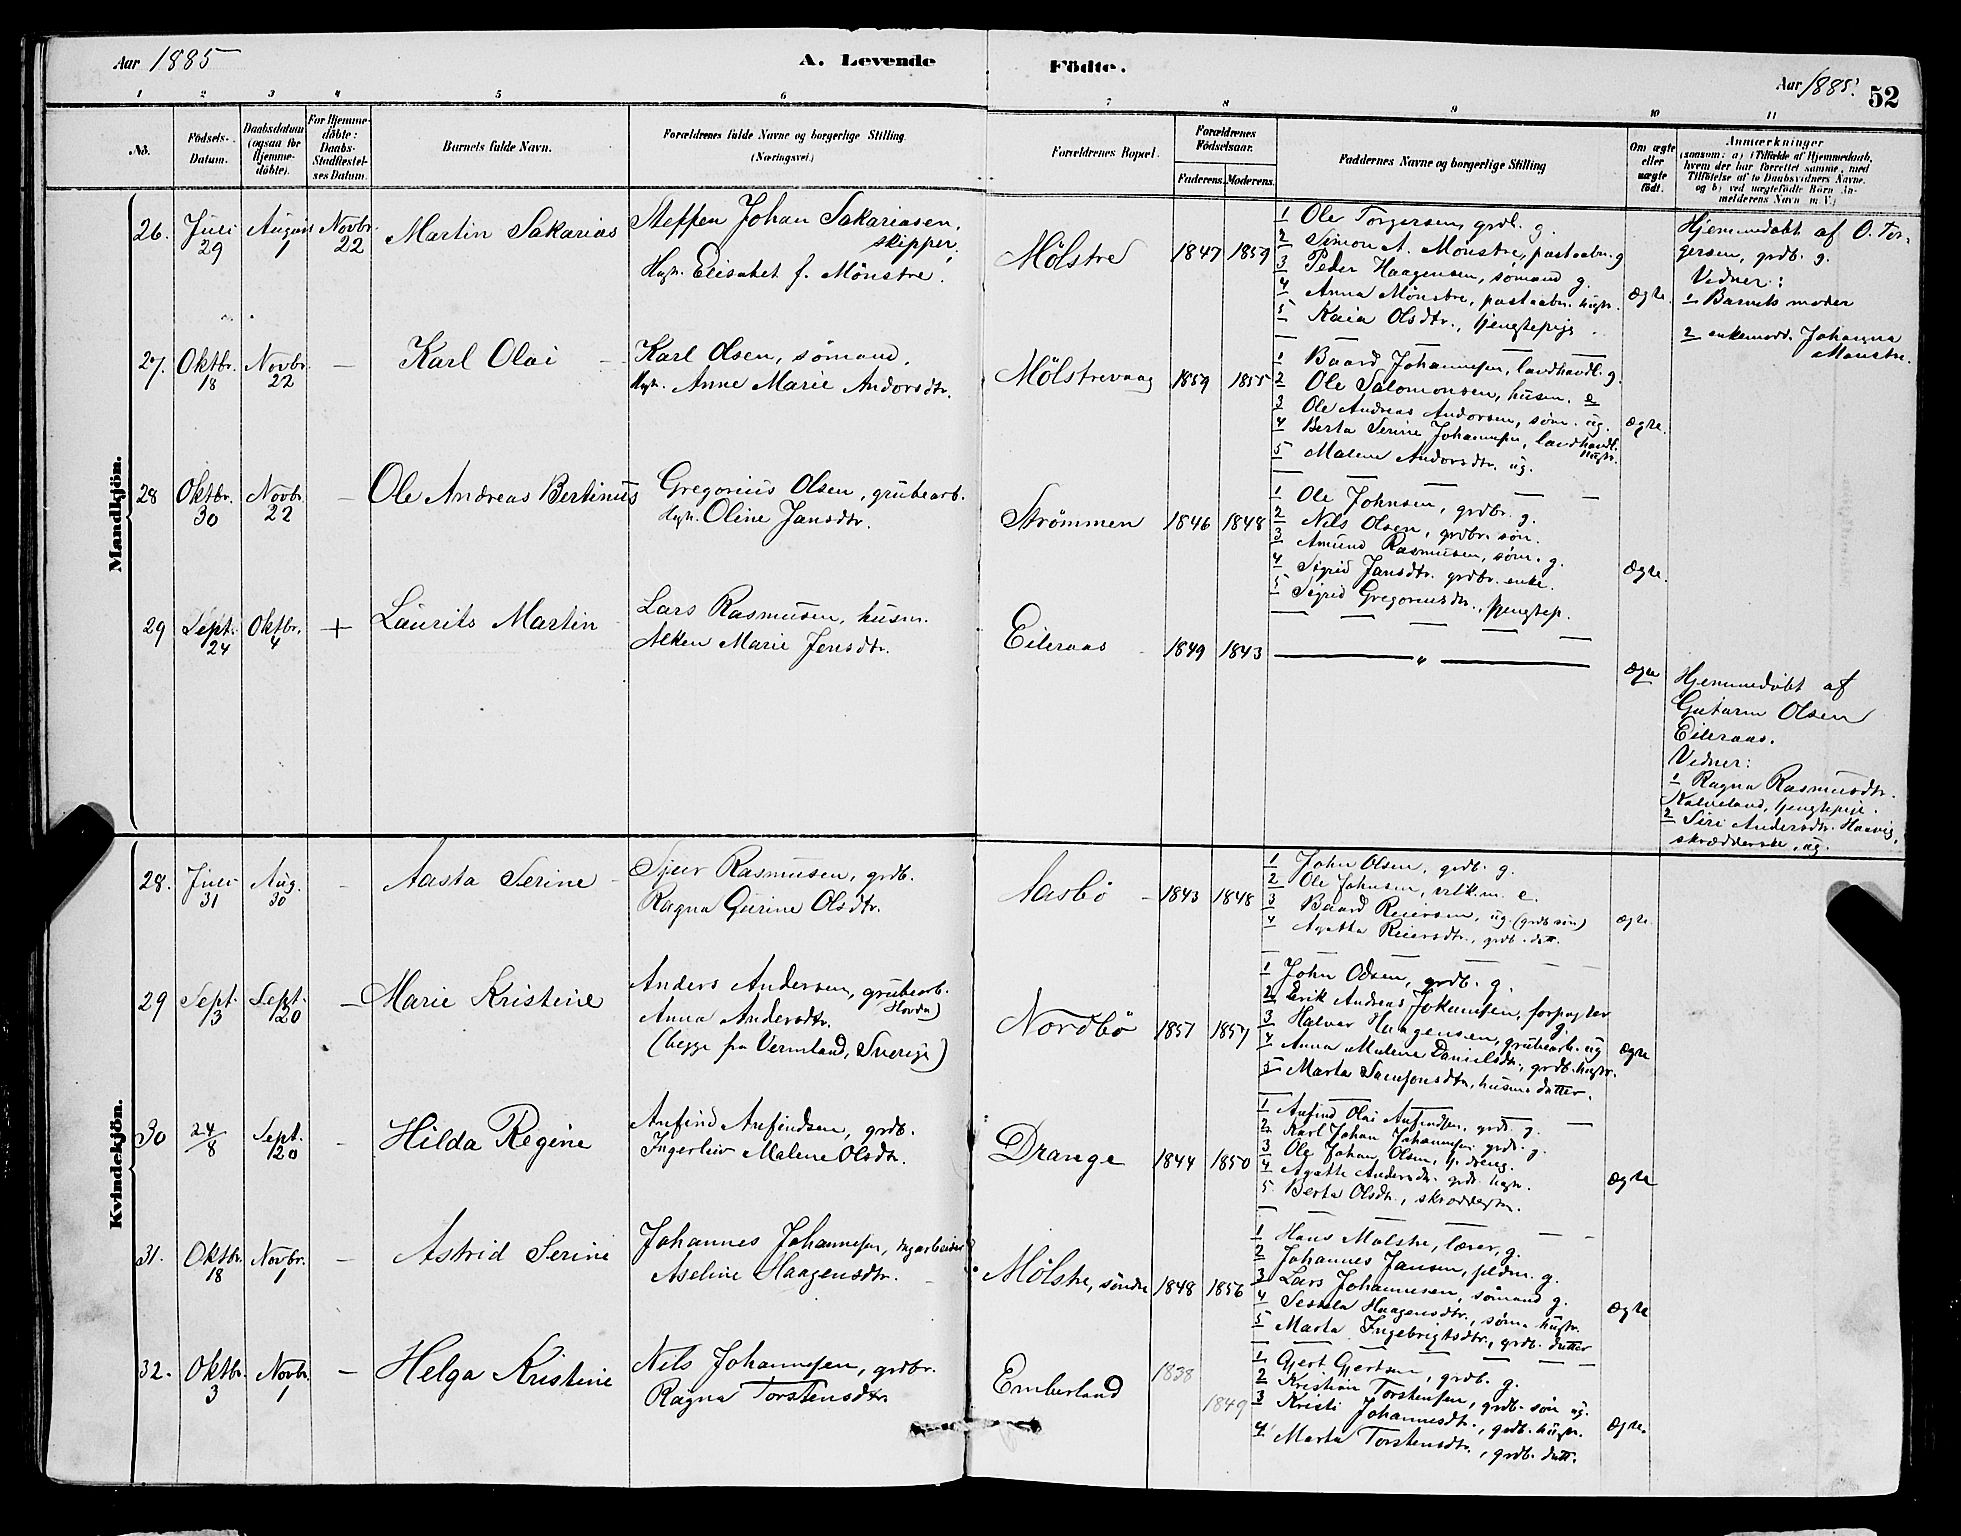 Aar 1885
A. Levende
Födte.
Aar 1885.
52
1 2 3 4 5 6 7 8 9 10 11
No.
Födsels-
Datum.
Daabsdatum
(ogsaa for
Hjemme-
döbte).
For Hjemme-
döbte:
Daabs-
Stadfæstel-
ses Datum.
Barnets fulde Navn.
Forældrenes fulde Navne og borgerlige Stilling
(Næringsvei.)
Forældrenes Bopæl.
Forældrenes
Födselsaar.
Faderens. Moderens.
Faddernes Navne og borgerlige Stilling
Om ægte
eller
uægte
födt.
Anmærkninger
(saasom: a) i Tilfælde af Hjemmedaab,
hvem der har forrettet samme, med
Tilföielse af to Daabsvidners Navne,
og b) ved uægtefödte Börn An-
melderens Navn m. V.)
Mandkjön.
26. Juli 29 August 1 Novbr. 22 Martin Sakarias
Steffen Johan Sakariasen,
skipper,
Hugtr. Elisabet f. Mønstre.
Mölstre 1847 1859
1 Ole Torgersen, grdb. g.
2 Simon A. Mønstre, postaabn. g
3 Peder Haagensen, sømand g.
4 Anna Mønstre, postaabn. hugtr.
5 Kaia Olsdtr., tjenstepige
Ægte.
Hjemmedøbt af O. Tor-
gersen, grdb. g.
Vidner:
1 Barnets moder
2 enkemad. Johanna
Mønstre.
27. Oktbr. 18 Novbr. 22 — Karl Olai
Karl Olsen, sømand,
Hugtr. Anne Marie Andorsdtr.
Mölstrevaag 1859 1855
1 Baard Johannesen, landhandl. g.
2 Ole Salomonsen, husm. e
3 Ole Andreas Andorsen, søm. ug.
4 Berta Serine Johannesen, landhandl.
hugtr.
5 Malene Andorsdtr. ug.
Ægte.
28 Oktbr. 30 Novbr. 22 — Ole Andreas Bertinus
Gregorius Olsen, grubearb.
Hugtr. Oline Jansdtr.
Strømmen 1846 1848
1 Ole Johnsen, grdbr. g.
2 Nils Olsen, grdbr. søn.
3 Amund Rasmusen, søm. g.
4 Sigrid Jansdtr. grdbr. enke.
5 Sigrid Gregoriusdtr., tjenstep.
Ægte.
29 Sept. 24 Oktbr. 4 + Laurits Martin
Lars Rasmusen, husm.
Alken Marie Jensdtr.
Eileraas 1849 1843
— " —
Ægte
Hjemmedøbt af
Gutorm Olsen
Eileraas.
Vidner:
1 Ragna Rasmusdtr.
Kalveland, tjenstepige.
2 Siri Andersdtr. Haavig,
skrædderske, ug.
Kvindekjön.
28. Juli 31 Aug. 30 — Aasta Serine
Sjur Rasmusen, grdb.
Ragna Gurine Olsdtr.
Aasbö 1843 1848
1 John Olsen, grdb. g.
2 Ole Johnsen, vilk.m. e.
3 Baard Reiersen, ug. (grdb søn)
4 Agatha Reiersdtr., grdb. datt.
Ægte.
29 Sept. 3 Sept. 20 — Marie Kristine
Anders Andersen, grubearb.
(Hovda)
Anna Andersdtr.
(begge fra Vermland, Sverige)
Nordbö 1857 1857
1 John Olsen, grdb. g.
2 Erik Andreas Johannesen, forpagter
g.
3 Halvor Haagensen, grubearb. ug
4 Anna Malene Danielsdtr., grdb. hugtr.
5 Marta Samsonsdtr., husm. datter.
Ægte
30 24/8 Sept. 20 — Hilda Regine
Anfind Anfindsen, grdb.
Ingerleiv Malene Olsdtr.
Drange 1844 1850
1 Anfind Olai Anfindsen, grdb. g.
2 Karl Johan Johannesen grdb. g.
3 Ole Johan Olsen, tj. dreng.
4 Agathe Andersdtr. grdb. hugtr.
5 Berta Olsdtr., skrædderske.
Ægte
31. Oktbr. 18 Novbr. 1 — Astrid Serine
Johannes Johannesen,
Aseline Haagensdtr.
Mölstre, søndre 1848 1856
1 Hans Mølstre, lærer, g.
2 Johannes Jansen, g.
3 Lars Johannesen, sømand g.
4 Haagensdtr., sømands hugtr.
5 Marta Ingebrigtsdtr., grdb. datter
Ægte
32. Oktbr. 3 Novbr. 1 — Helga Kristine
Nils Johannesen, grdbr.
Ragna Torstensdtr.
Emberland 1838 1849
1 Gjert Gjertsen, grdb. g.
2 Kristian Torstensen, grdb. søn ug.
3 Kristi Johannesdtr., grdb. hugtr.
4 Marta Torstensdtr., grdb. datt.
Ægte.